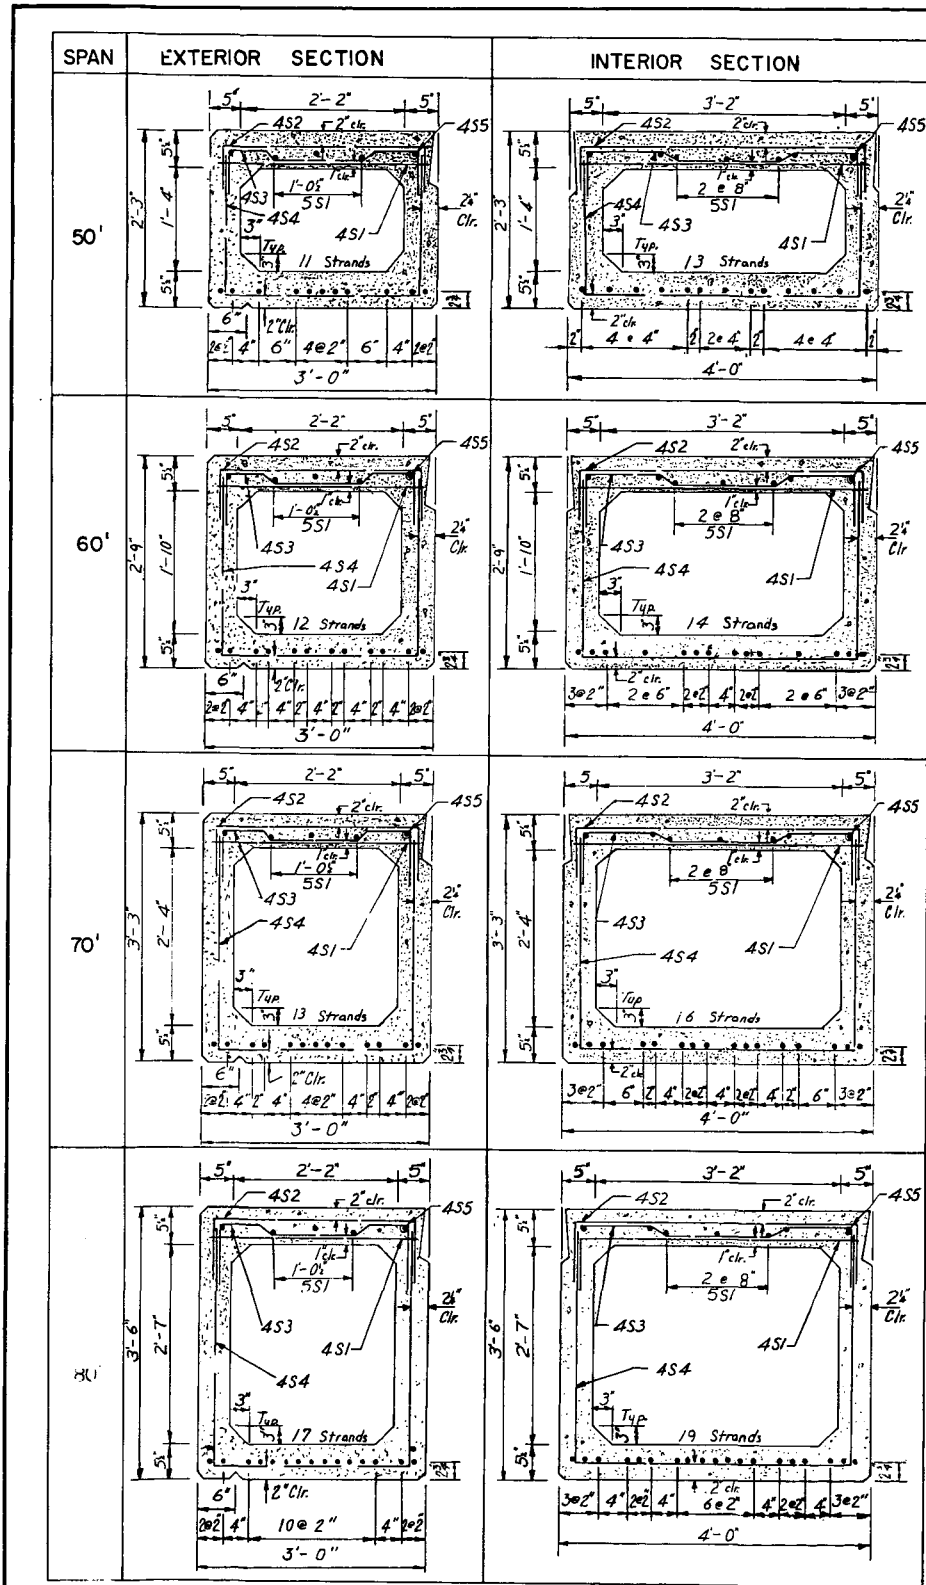 SPAN
EXTERIOR SECTION
INTERIOR SECTION
50'
5" 2'-2" 5"
4S2
2"clr.
4S5
5½"
1"clr.
1'-0½"
5S1
4S3
4S4
2'-3"
1'-4"
2¼"
Clr.
3"
Typ.
3"
4S1
11 Strands
5½"
2¾"
6"
2"Clr.
2@2" 4" 6" 4@2" 6" 4" 2@2"
3'-0"
5" 3'-2" 5"
4S2
2"clr.
4S5
5½"
1"clr.
2 @ 8"
5S1
4S4
4S3
2'-3"
1'-4"
2¼"
Clr.
3"
Typ.
3"
4S1
13 Strands
5½"
2¾"
2"clr.
2" 4 @ 4" 2" 2@4" 2" 4@4" 2"
4'-0"
60'
5" 2'-2" 5"
4S2
2"clr.
4S5
5½"
1"clr.
1'-0½"
5S1
4S3
4S4
4S1
2'-9"
1'-10"
2¼"
Clr.
3"
Typ.
3"
12 Strands
5½"
2¾"
6"
2"Clr.
2@2" 4" 2" 4" 2" 4" 2" 4" 2" 4" 2@2"
3'-0"
5" 3'-2" 5"
4S2
2"clr.
4S5
5½"
1"clr.
2 @ 8"
5S1
4S3
4S4
4S1
2'-9"
1'-10"
2¼"
Clr.
3"
Typ.
3"
14 Strands
5½"
2¾"
2"clr.
3@2" 2@6" 2@2" 4" 2@2" 2@6" 3@2"
4'-0"
70'
5" 2'-2" 5"
4S2
2"clr.
4S5
5½"
1"clr.
1'-0½"
5S1
4S3
4S4
4S1
3'-3"
2'-4"
2¼"
Clr.
3"
Typ.
3"
13 Strands
5½"
2¾"
6"
2"Clr.
2@2" 4" 2" 4" 4@2" 4" 2" 4" 2@2"
3'-0"
5 3'-2" 5"
4S2
2"clr.
4S5
5½"
1"clr.
2 @ 8"
5S1
4S3
4S4
4S1
3'-3"
2'-4"
2¼"
Clr.
3"
Typ
3"
16 Strands
5½"
2¾"
2"clr.
3@2" 6" 2" 4" 2@2" 4" 2@2" 4" 2" 6" 3@2"
4'-0"
80'
5" 2'-2" 5"
4S2
2"clr.
4S5
5½"
1"clr.
1'-0½"
5S1
4S3
4S4
4S1
3'-6"
2'-7"
2¼"
Clr.
3"
Typ.
3"
17 Strands
5½"
2¾"
6"
2"Clr.
2@2" 4" 10@2" 4" 2@2"
3'-0"
5" 3'-2" 5"
4S2
2"clr.
4S5
5½"
1"clr.
2 @ 8"
5S1
4S3
4S4
4S1
3'-6"
2'-7"
2¼"
Clr.
3"
Typ.
3"
19 Strands
5½"
2¾"
2"clr.
3@2" 4" 2@2" 4" 6@2" 4" 2@2" 4" 3@2"
4'-0"